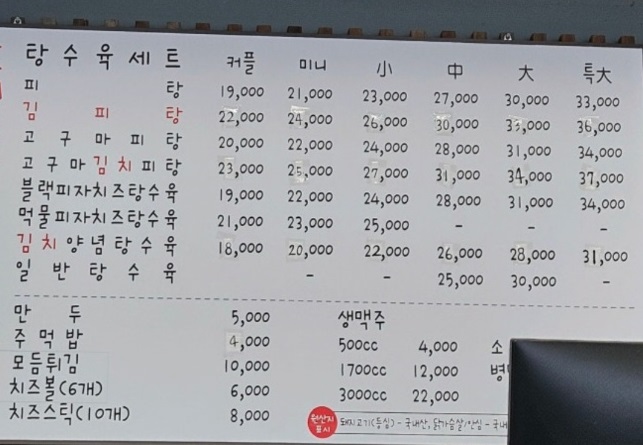 탕수육세트 커플 미니 小 中 大 특大
피탕 19,000 21,000 23,000 27,000 30,000 33,000
김피탕 22,000 24,000 26,000 30,000 33,000 36,000
고구마피탕 20,000 22,000 24,000 28,000 31,000 34,000
고구마김치피탕 23,000 25,000 27,000 31,000 34,000 37,000
블랙피자치즈탕수육 19,000 22,000 24,000 28,000 31,000 34,000
먹물피자치즈탕수육 21,000 23,000 25,000 - - -
김치양념탕수육 18,000 20,000 22,000 26,000 28,000 31,000
일반탕수육 - - 25,000 30,000 -
만두 5,000 생맥주
주먹밥 4,000 500cc 4,000 소
모듬튀김 10,000 1700cc 12,000
치즈볼(6개) 6,000 3000cc 22,000
치즈스틱(10개) 8,000
원산지 표시 돼지고기(등심) - 국내산, 닭가슴살/안심 - 국내